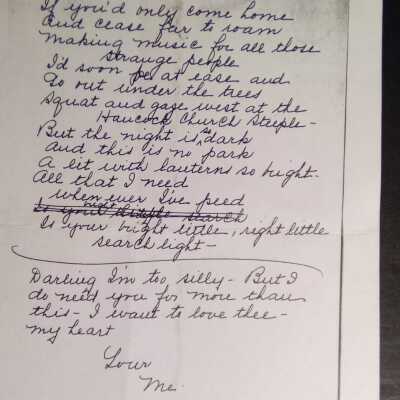 If you'd only come home
and cease far to roam
making music for all those
strange people
I'd soon be at ease and
Go out under the trees
Squat and gaze west at the
Hancock Church Steeple -
But the night is so dark
and this is no park
A lit with lanterns so bright.
All that I need
when ever I've peed
Is your bright little, right little
search light -
Darling I'm too, silly - But I
do need you for more than
this - I want to love thee -
my heart
Your
Me.